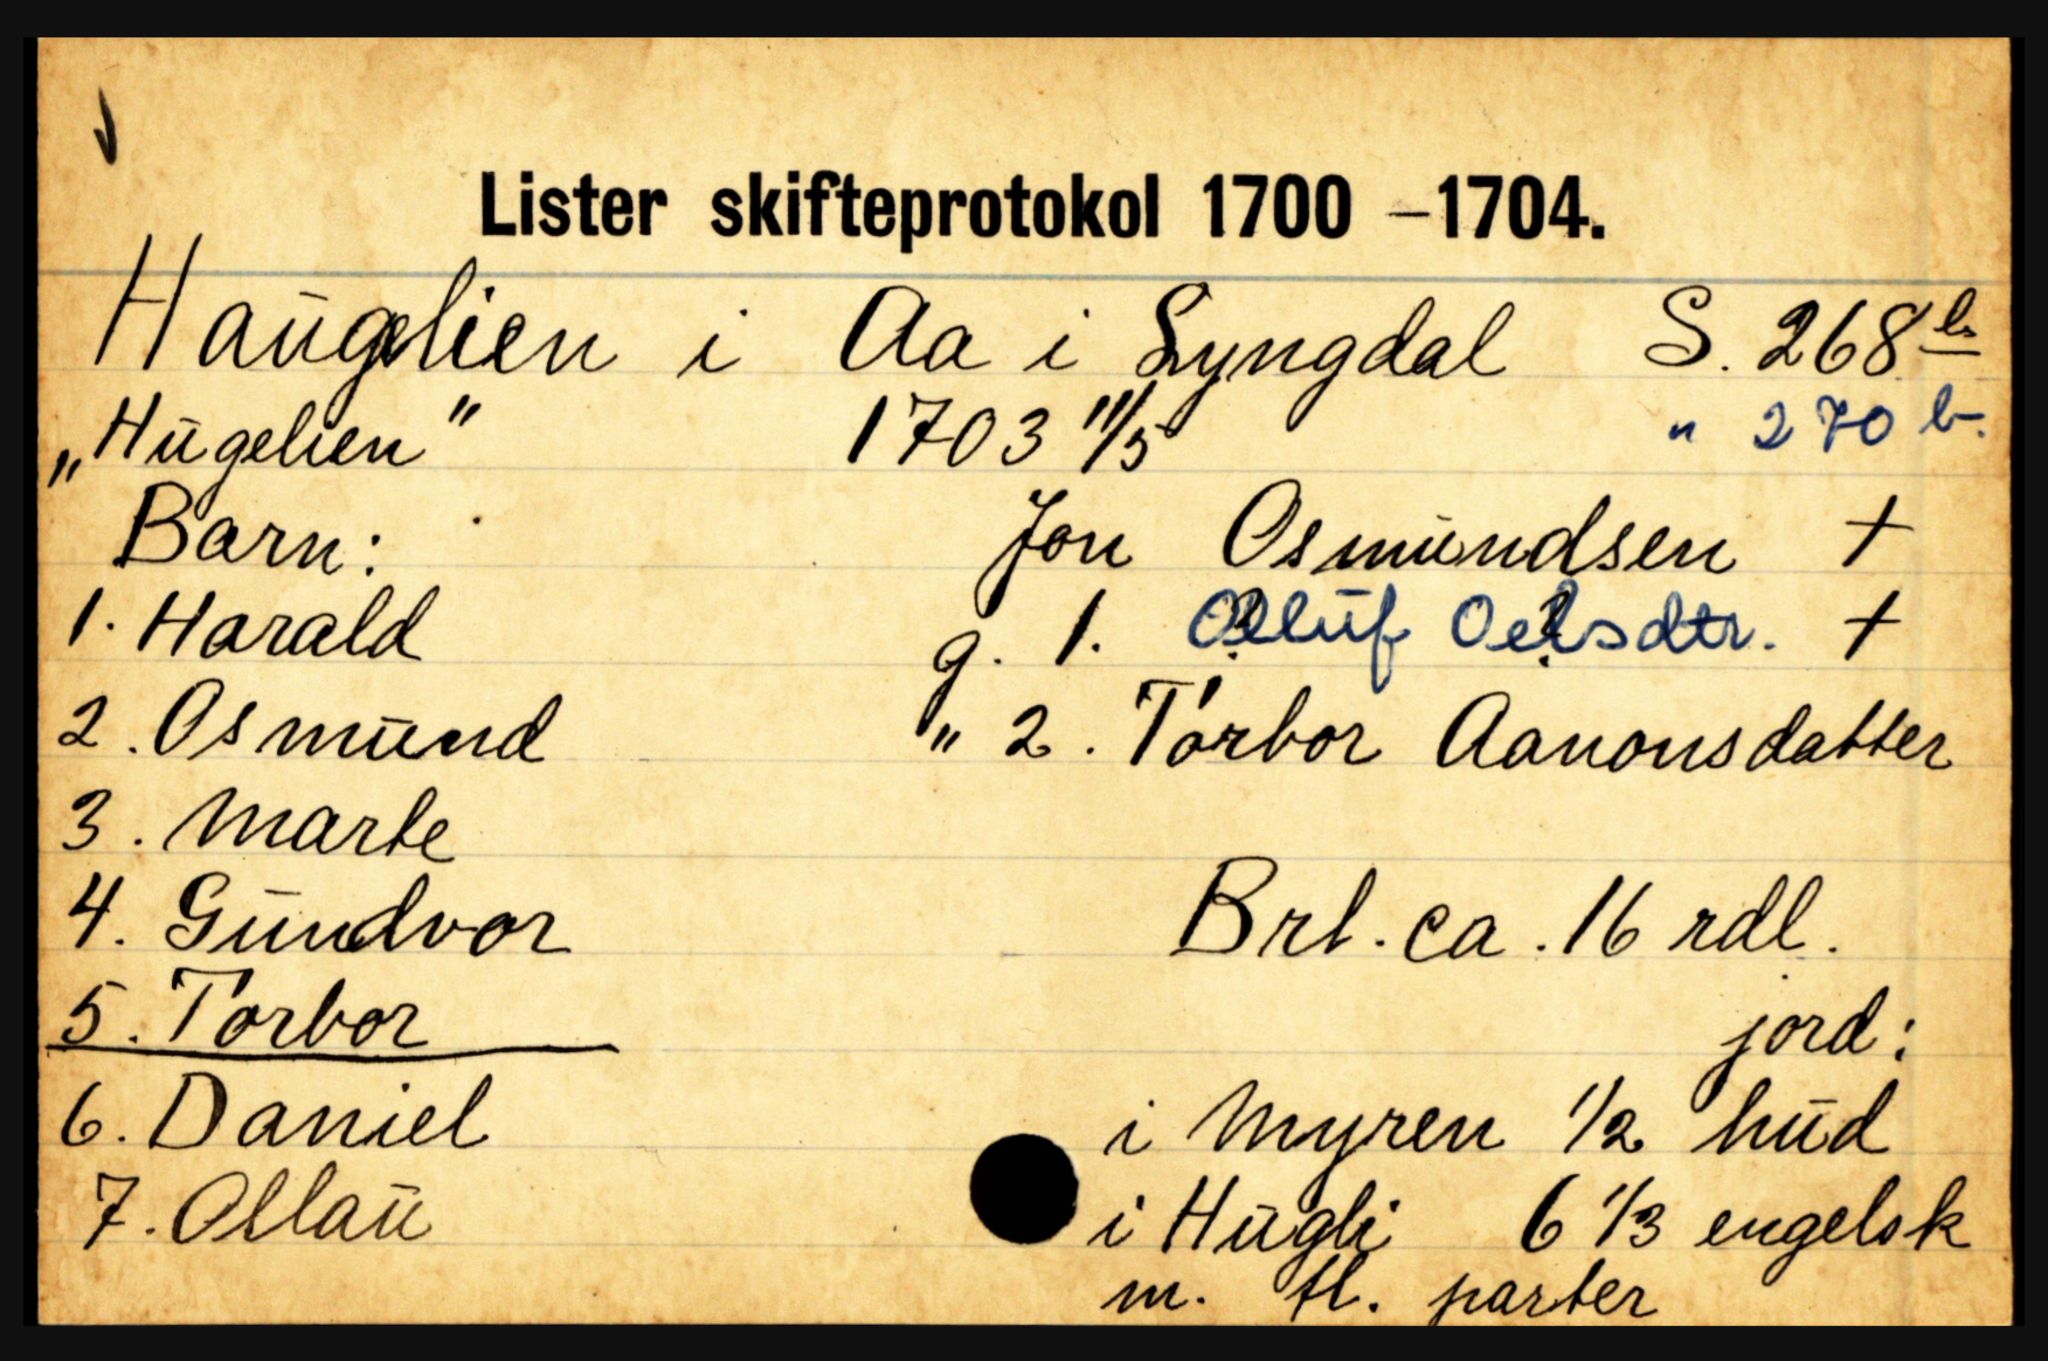 Lister skifteprotokol 1700 – 1704.
Haugelien i Aa i Lyngdal S. 268 b.
„Hugelien" 1703 11/5 " 270 b.
Barn: Jon Osmundsen +
1. Harald g. 1. Olluf Oelsdtr. +
2. Osmund " 2. Torbor Aanonsdatter
3. Marte
4. Gundvor Brt. ca. 16 rdl.
5. Torbor jord:
6. Daniel i Myren 1/2 hud
7. Ollau i Hugli 6 1/3 engelsk
m. fl. parter